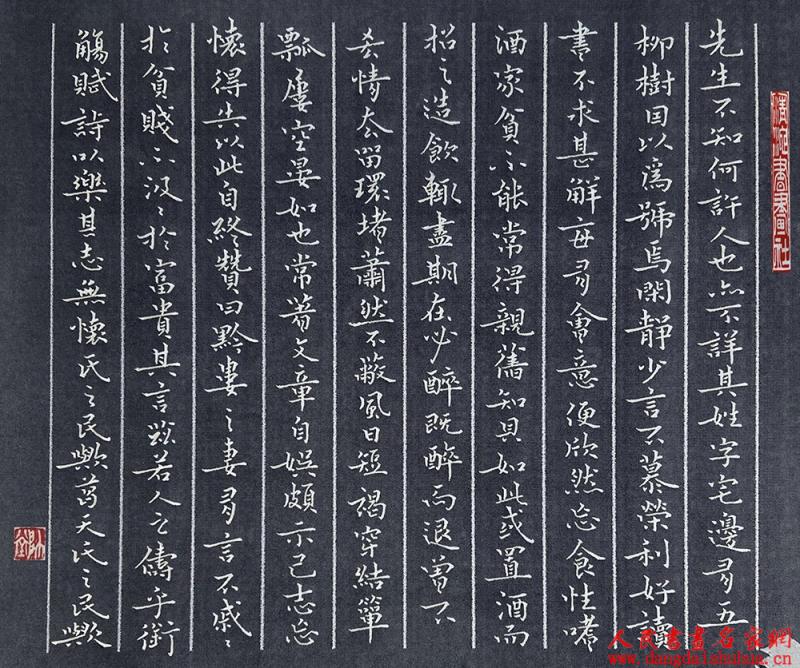 先生不知何許人也亦不詳其姓字宅邊有五
柳樹因以爲號焉閑靜少言不慕榮利好讀
書不求甚解每有會意便欣然忘食性嗜
酒家貧不能常得親舊知其如此或置酒而
招之造飲輒盡期在必醉既醉而退曾不
吝情去留環堵蕭然不蔽風日短褐穿結簞
瓢屢空晏如也常著文章自娛頗示己志忘
懷得失以此自終贊曰黔婁之妻有言不戚〻
於貧賤不汲〻於富貴其言茲若人之儔乎銜
觴賦詩以樂其志無懷氏之民歟葛天氏之民歟
人民書畫名家網